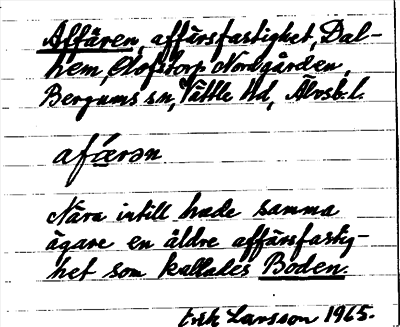 Affären, affärsfastighet, Dal-
hem, Olofstorp Nordgården,
Bergums sn, Vättle hd, Älvsb. l.
afæ̀rən
Nära intill hade samma
ägare en äldre affärsfastig-
het som kallades Boden.
Erik Larsson 1965.